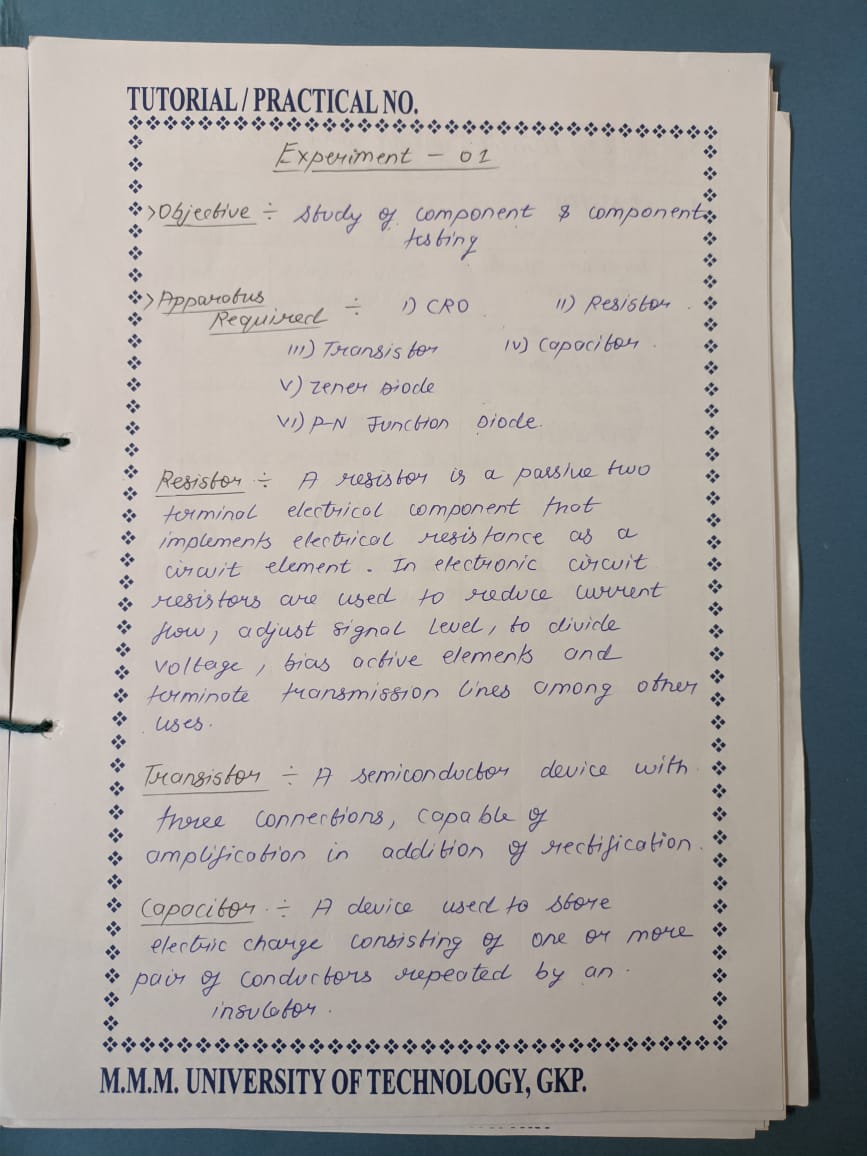 TUTORIAL / PRACTICAL NO.
Experiment - 01
>Objective ÷ Study of component & component
testing
>Apparatus
Required ÷ i) CRO ii) Resistor.
iii) Transistor iv) Capacitor.
v) Zener Diode
vi) P-N Junction Diode.
Resistor ÷ A resistor is a passive two
terminal electrical component that
implements electrical resistance as a
circuit element. In electronic circuit
resistors are used to reduce current
flow, adjust signal level, to divide
voltage, bias active elements and
terminate transmission lines among other
uses.
Transistor ÷ A semiconductor device with
three connections, capable of
amplification in addition of rectification.
Capacitor ÷ A device used to store
electric charge consisting of one or more
pair of conductors repeated by an
insulator.
M.M.M. UNIVERSITY OF TECHNOLOGY, GKP.